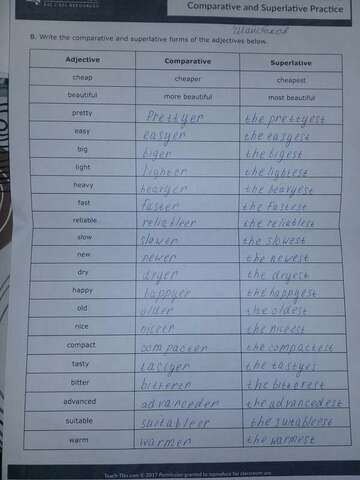 ESL/EFL RESOURCES
Comparative and Superlative Practice
B. Write the comparative and superlative forms of the adjectives below.
Adjective Comparative Superlative
cheap cheaper cheapest
beautiful more beautiful most beautiful
pretty Prettyer the prettyest
easy easyer the easyest
big biger the bigest
light lighter the lightest
heavy heavyer the heavyest
fast faster the fastest
reliable reliableer the reliablest
slow slower the slowest
new newer the newest
dry dryer the dryest
happy happyer the happyest
old older the oldest
nice niceer the niceest
compact compacter the compactest
tasty tastyer the tastyes
bitter bitterer the bitterest
advanced advanceder the advancedest
suitable suitableer the suitableest
warm warmer the warmest
Teach-This.com © 2017 Permission granted to reproduce for classroom use.